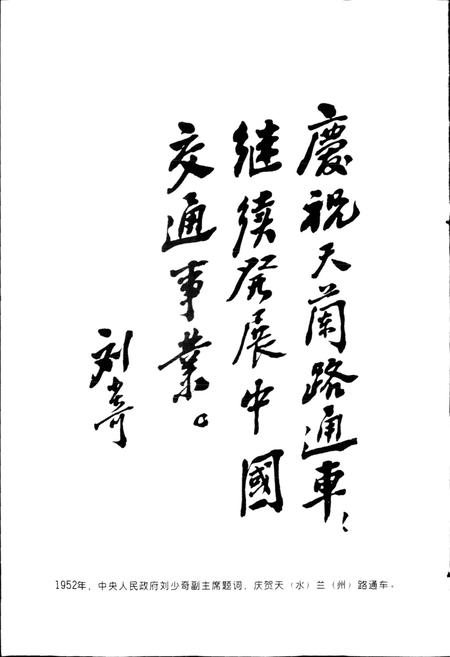 慶祝天蘭路通車；
继续發展中國
交通事業。
刘少奇
1952年，中央人民政府刘少奇副主席题词，庆贺天（水）兰（州）路通车。